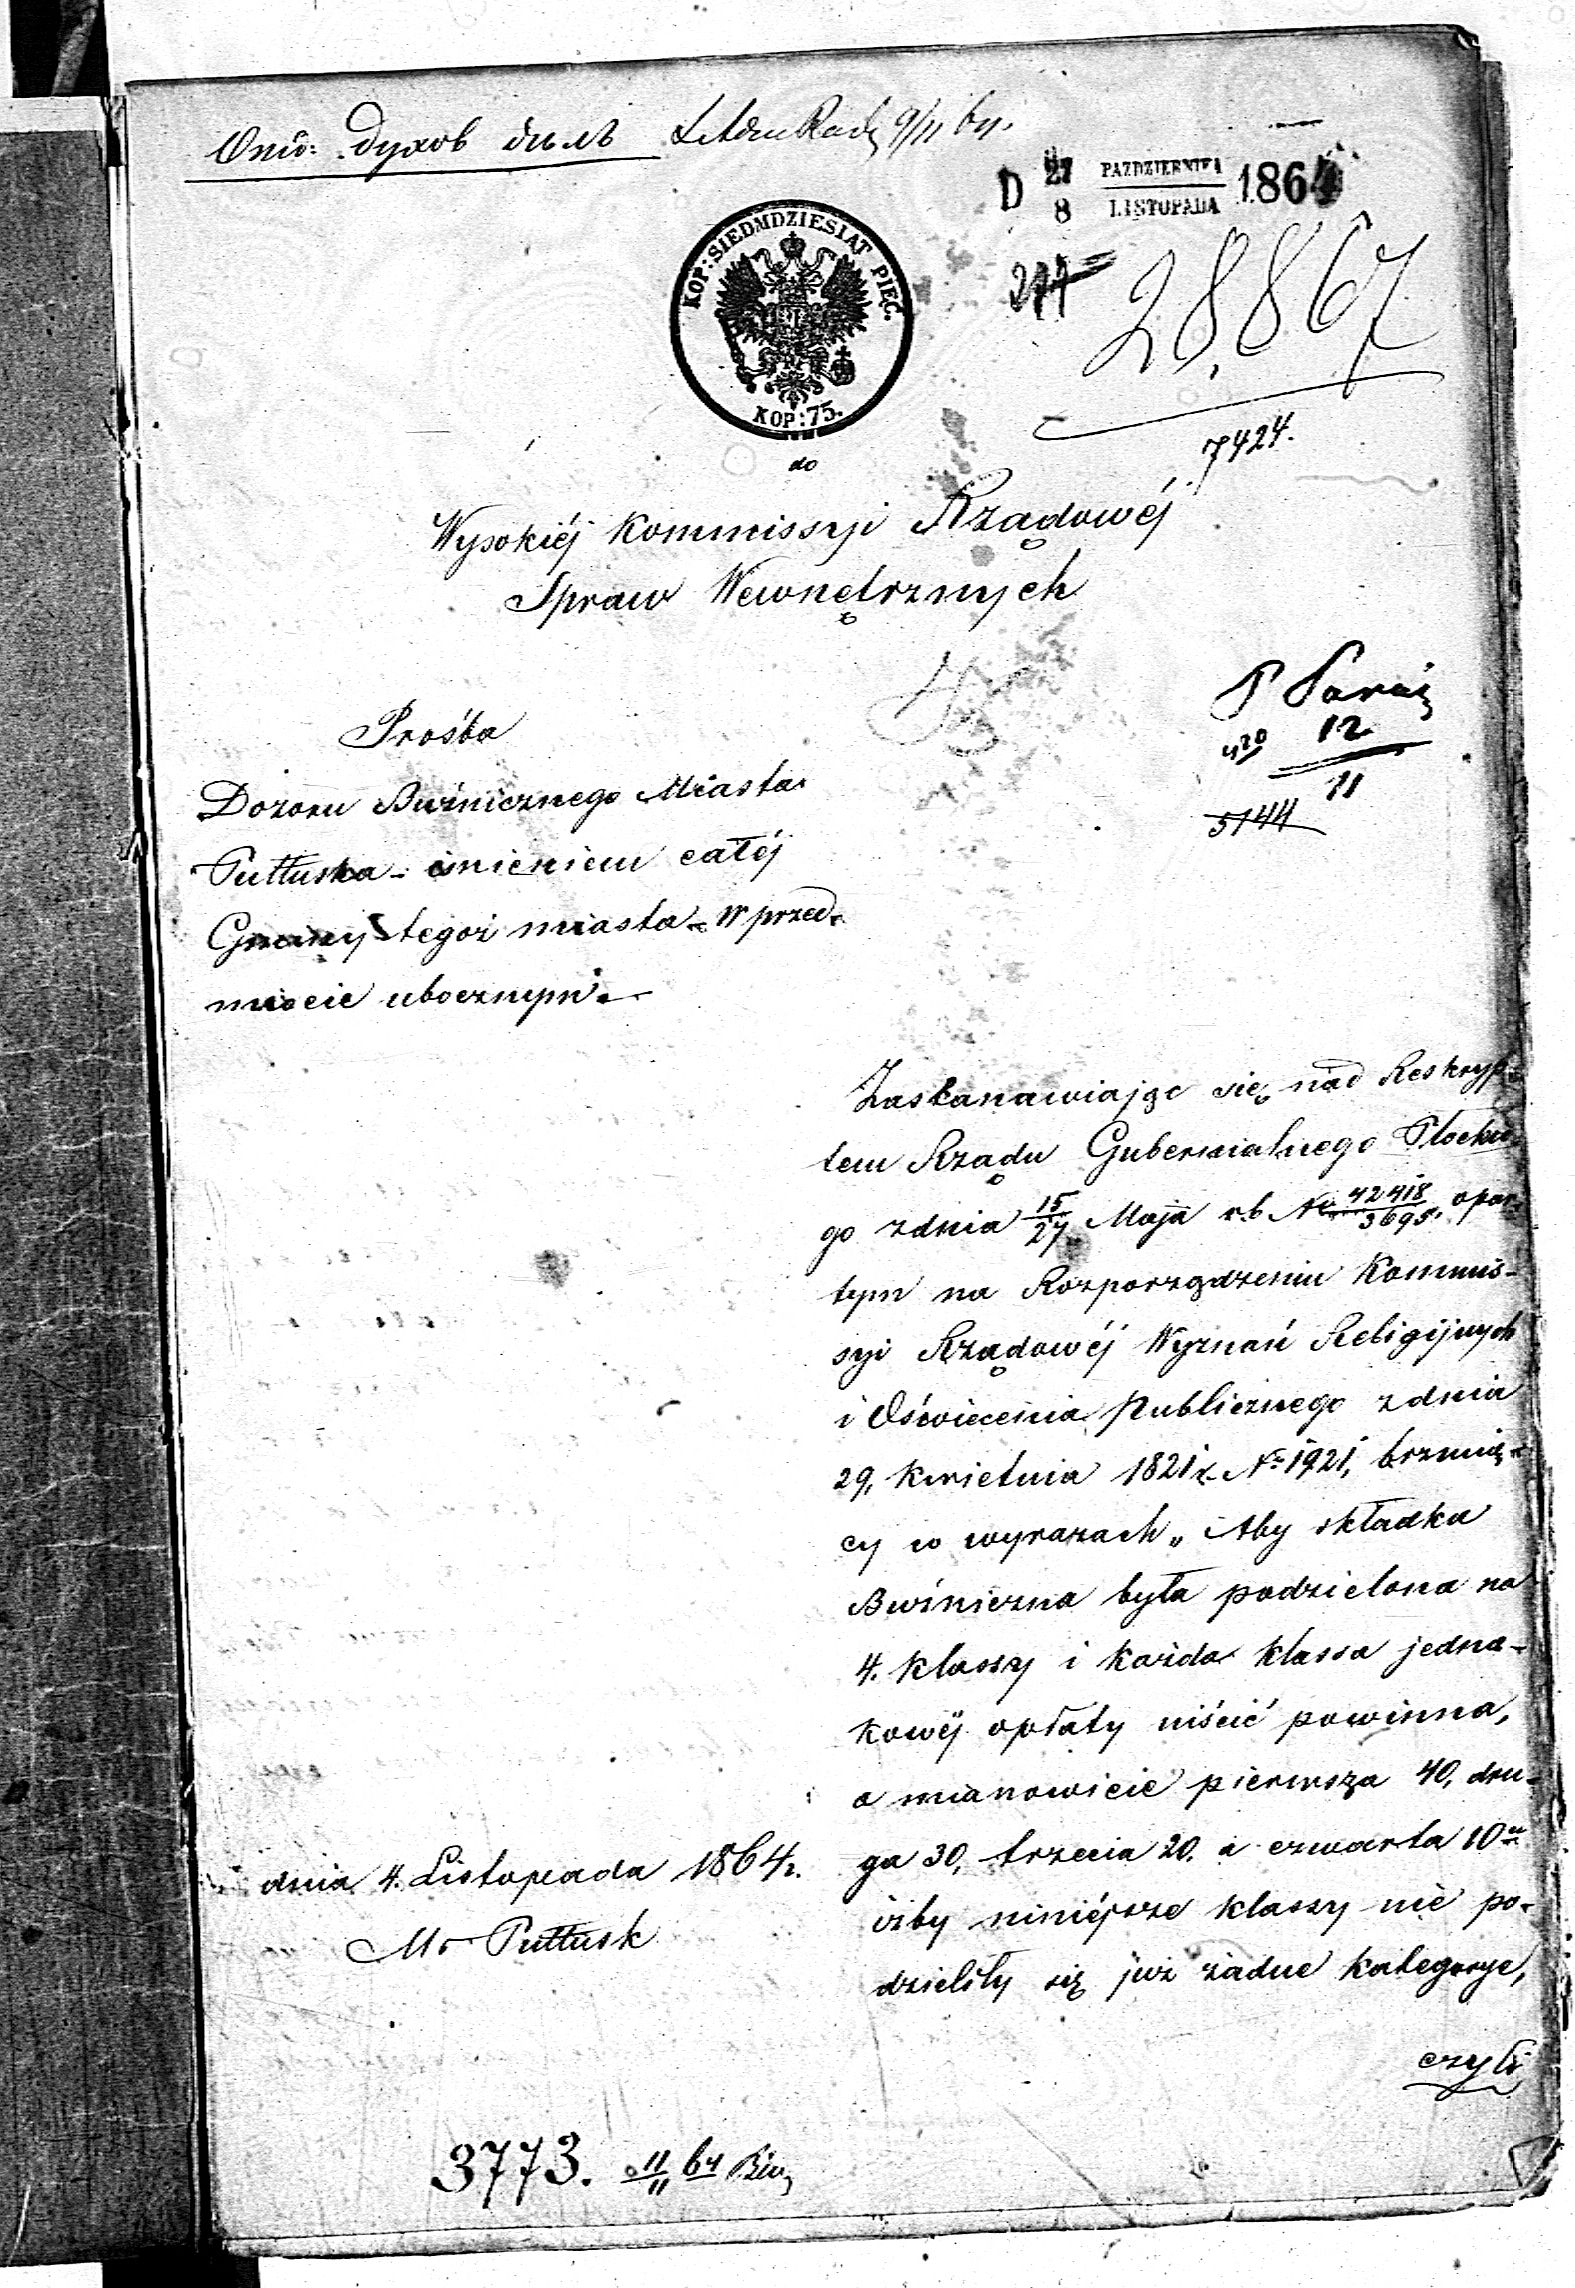 духов
D 27 PAZDZIERNIKA 1864
8 LISTOPADA
KOP: SIEDMDZIESIAT PIĘC.
KOP: 75.
28,867
7424.
do
Wysokiéj Kommissyi Rządowéj
Spraw Wewnętrznych
Prośba
Dozoru Buźnicznego Miasta
Pułtuska - imieniem całéj
Gminy tegoż miasta - w przed-
miocie ubocznym -
12
11
5144
Zastanawiając się nad Reskryp-
tem Rządu Gubernialnego Płockie-
go z dnia 15/27 Maja r.b. No 42418/3695, opar-
tym na Rozporządzeniu Kommis-
syi Rządowéj Wyznań Religijnych
i Oświecenia Publicznego z dnia
29. Kwietnia 1821 r. No 1921, brzmią-
cy w wyrazach „Aby składka
Buźniczna była podzielona na
4. klassy i każda klassa jedna-
kowéj opłaty uiścić powinna,
a mianowicie pierwsza 40, dru-
ga 30, trzecia 20. a czwarta 10"
iżby niniéjsze klassy nie po-
dzieliły się już żadne kategorye,
czyli
dnia 4. Listopada 1864 r.
M. Pułtusk
3773. 11/11 64